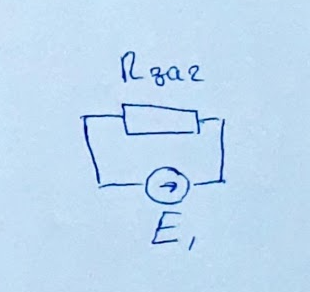 Rзаг
E₁